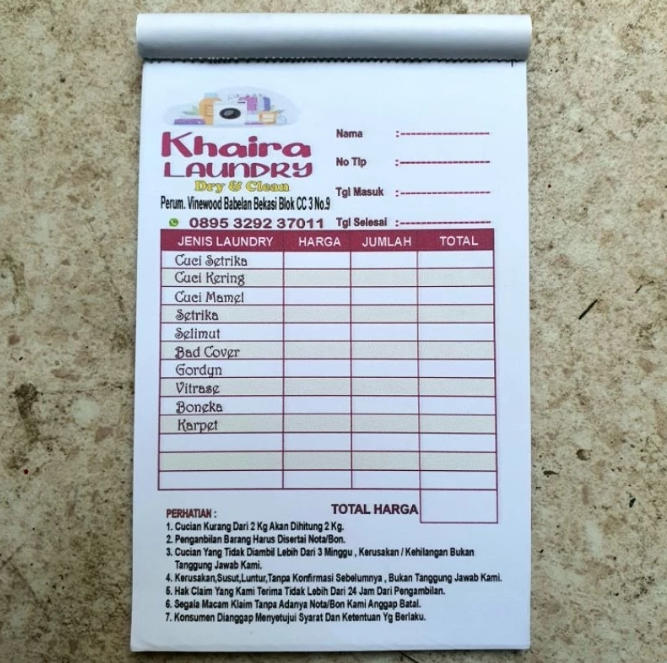 Khaira
LAUNDRY
Dry & Clean
Perum. Vinewood Babelan Bekasi Blok CC 3 No.9
0895 3292 37011
Nama :
No Tlp :
Tgl Masuk :
Tgl Selesai :
JENIS LAUNDRY HARGA JUMLAH TOTAL
Cuci Setrika
Cuci Kering
Cuci Mamel
Setrika
Selimut
Bad Cover
Gordyn
Vitrase
Boneka
Karpet
TOTAL HARGA
PERHATIAN :
1. Cucian Kurang Dari 2 Kg Akan Dihitung 2 Kg.
2. Penganbilan Barang Harus Disertai Nota/Bon.
3. Cucian Yang Tidak Diambil Lebih Dari 3 Minggu , Kerusakan / Kehilangan Bukan
Tanggung Jawab Kami.
4. Kerusakan,Susut,Luntur,Tanpa Konfirmasi Sebelumnya , Bukan Tanggung Jawab Kami.
5. Hak Claim Yang Kami Terima Tidak Lebih Dari 24 Jam Dari Pengambilan.
6. Segala Macam Klaim Tanpa Adanya Nota/Bon Kami Anggap Batal.
7. Konsumen Dianggap Menyetujui Syarat Dan Ketentuan Yg Berlaku.